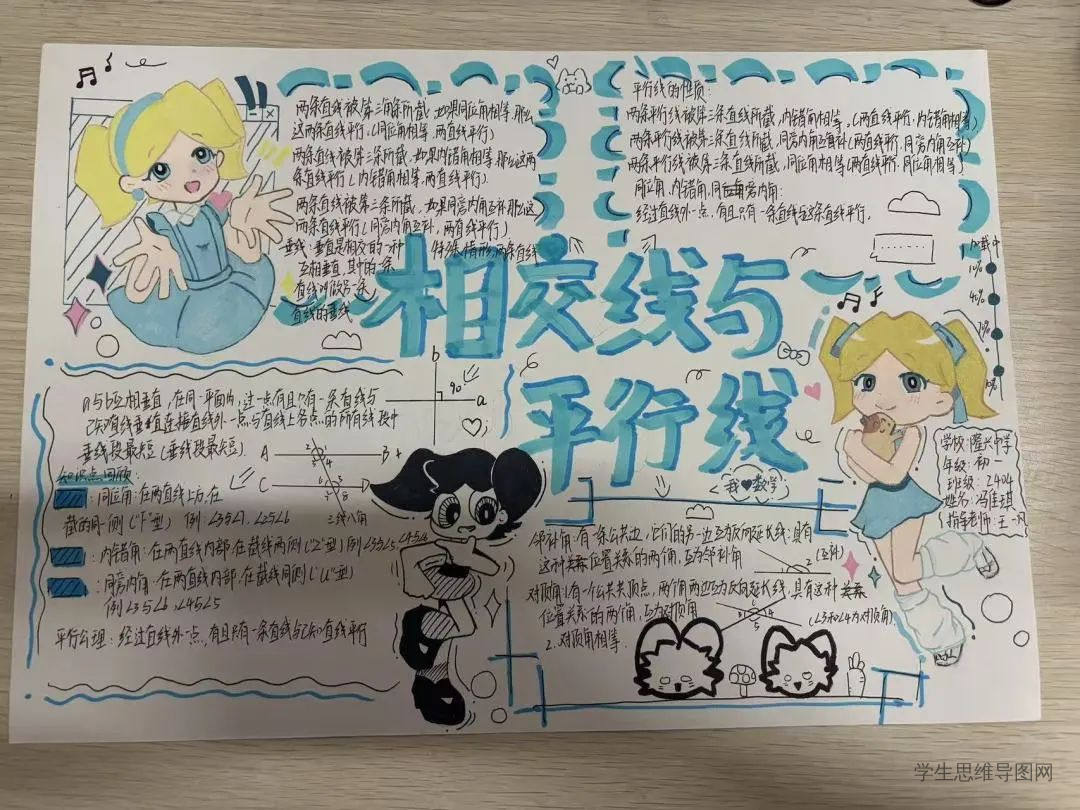 两条直线被第三条所截,如果同位角相等,那么
这两条直线平行(同位角相等,两直线平行)
两条直线被第三条所截,如果内错角相等,那么这两
条直线平行(内错角相等,两直线平行).
两条直线被第三条所截,如果同旁内角互补那么这
两条直线平行(同旁内角互补,两直线平行)
垂线:垂直是相交的一种特殊情形,两条直线
互相垂直,其中的一条
直线叫做另一条
直线的垂线
平行线的性质:
两条平行线被第三条直线所截,内错角相等。(两直线平行,内错角相等)
两条平行线被第三条直线所截,同旁内角互补(两直线平行,同旁内角互补)
两条平行线被第三条直线所截,同位角相等(两直线平行,同位角相等)
同位角,内错角,同旁内角:
经过直线外一点,有且只有一条直线与这条直线平行。
相交线与
平行线
加载中
10%
40%
b
90°
a
a与b互相垂直,在同一平面内,过一点有且只有一条直线与
已知直线垂直连接直线外一点与直线上各点的所有线段中
垂线段最短(垂线段最短)
A
B
C
D
三线八角
知识点回顾
:同位角:在两直线上方,在
截的同一侧("F"型) 例:∠3∠1,∠2∠6
:内错角:在两直线内部,在截线两侧("Z"型)例∠3∠5,∠4∠6
:同旁内角:在两直线内部,在截线同侧("U"型)
例∠3∠6,∠4∠5
平行公理:经过直线外一点,有且只有一条直线与已知直线平行
我♥数学
邻补角:有一条公共边,它们的另一边互为反向延长线,具有
这种关系位置关系的两个角,互为邻补角
(互补)
对顶角:1有一个公共顶点,两个角两边互为反向延长线,具有这种关系
位置关系的两个角,互为对顶角
(∠3和∠4为对顶角)
2.对顶角相等.
学校:隆兴中学
年级:初一
班级:2404
姓名:冯佳琪
指导老师:王一凡
学生思维导图网